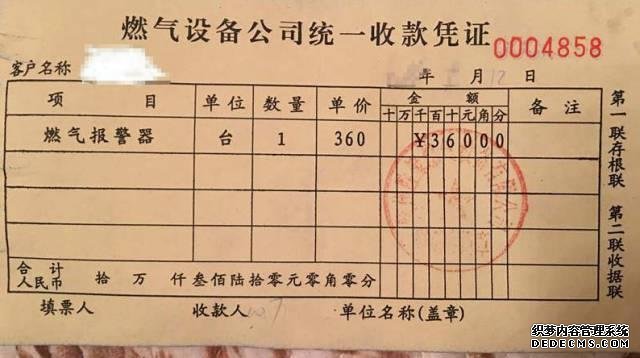 燃气设备公司统一收款凭证 0004858
客户名称 年 月12日
项 目 单位 数量 单价 金 额 备 注
十万千百十元角分
燃气报警器 台 1 360 ¥36000
合 计
人民币 拾 万 仟叁佰陆拾零元零角零分
填票人 收款人 单位名称(盖章)
第一联存根联
第二联收据联
织梦内容管理系统
DEDECMS.COM